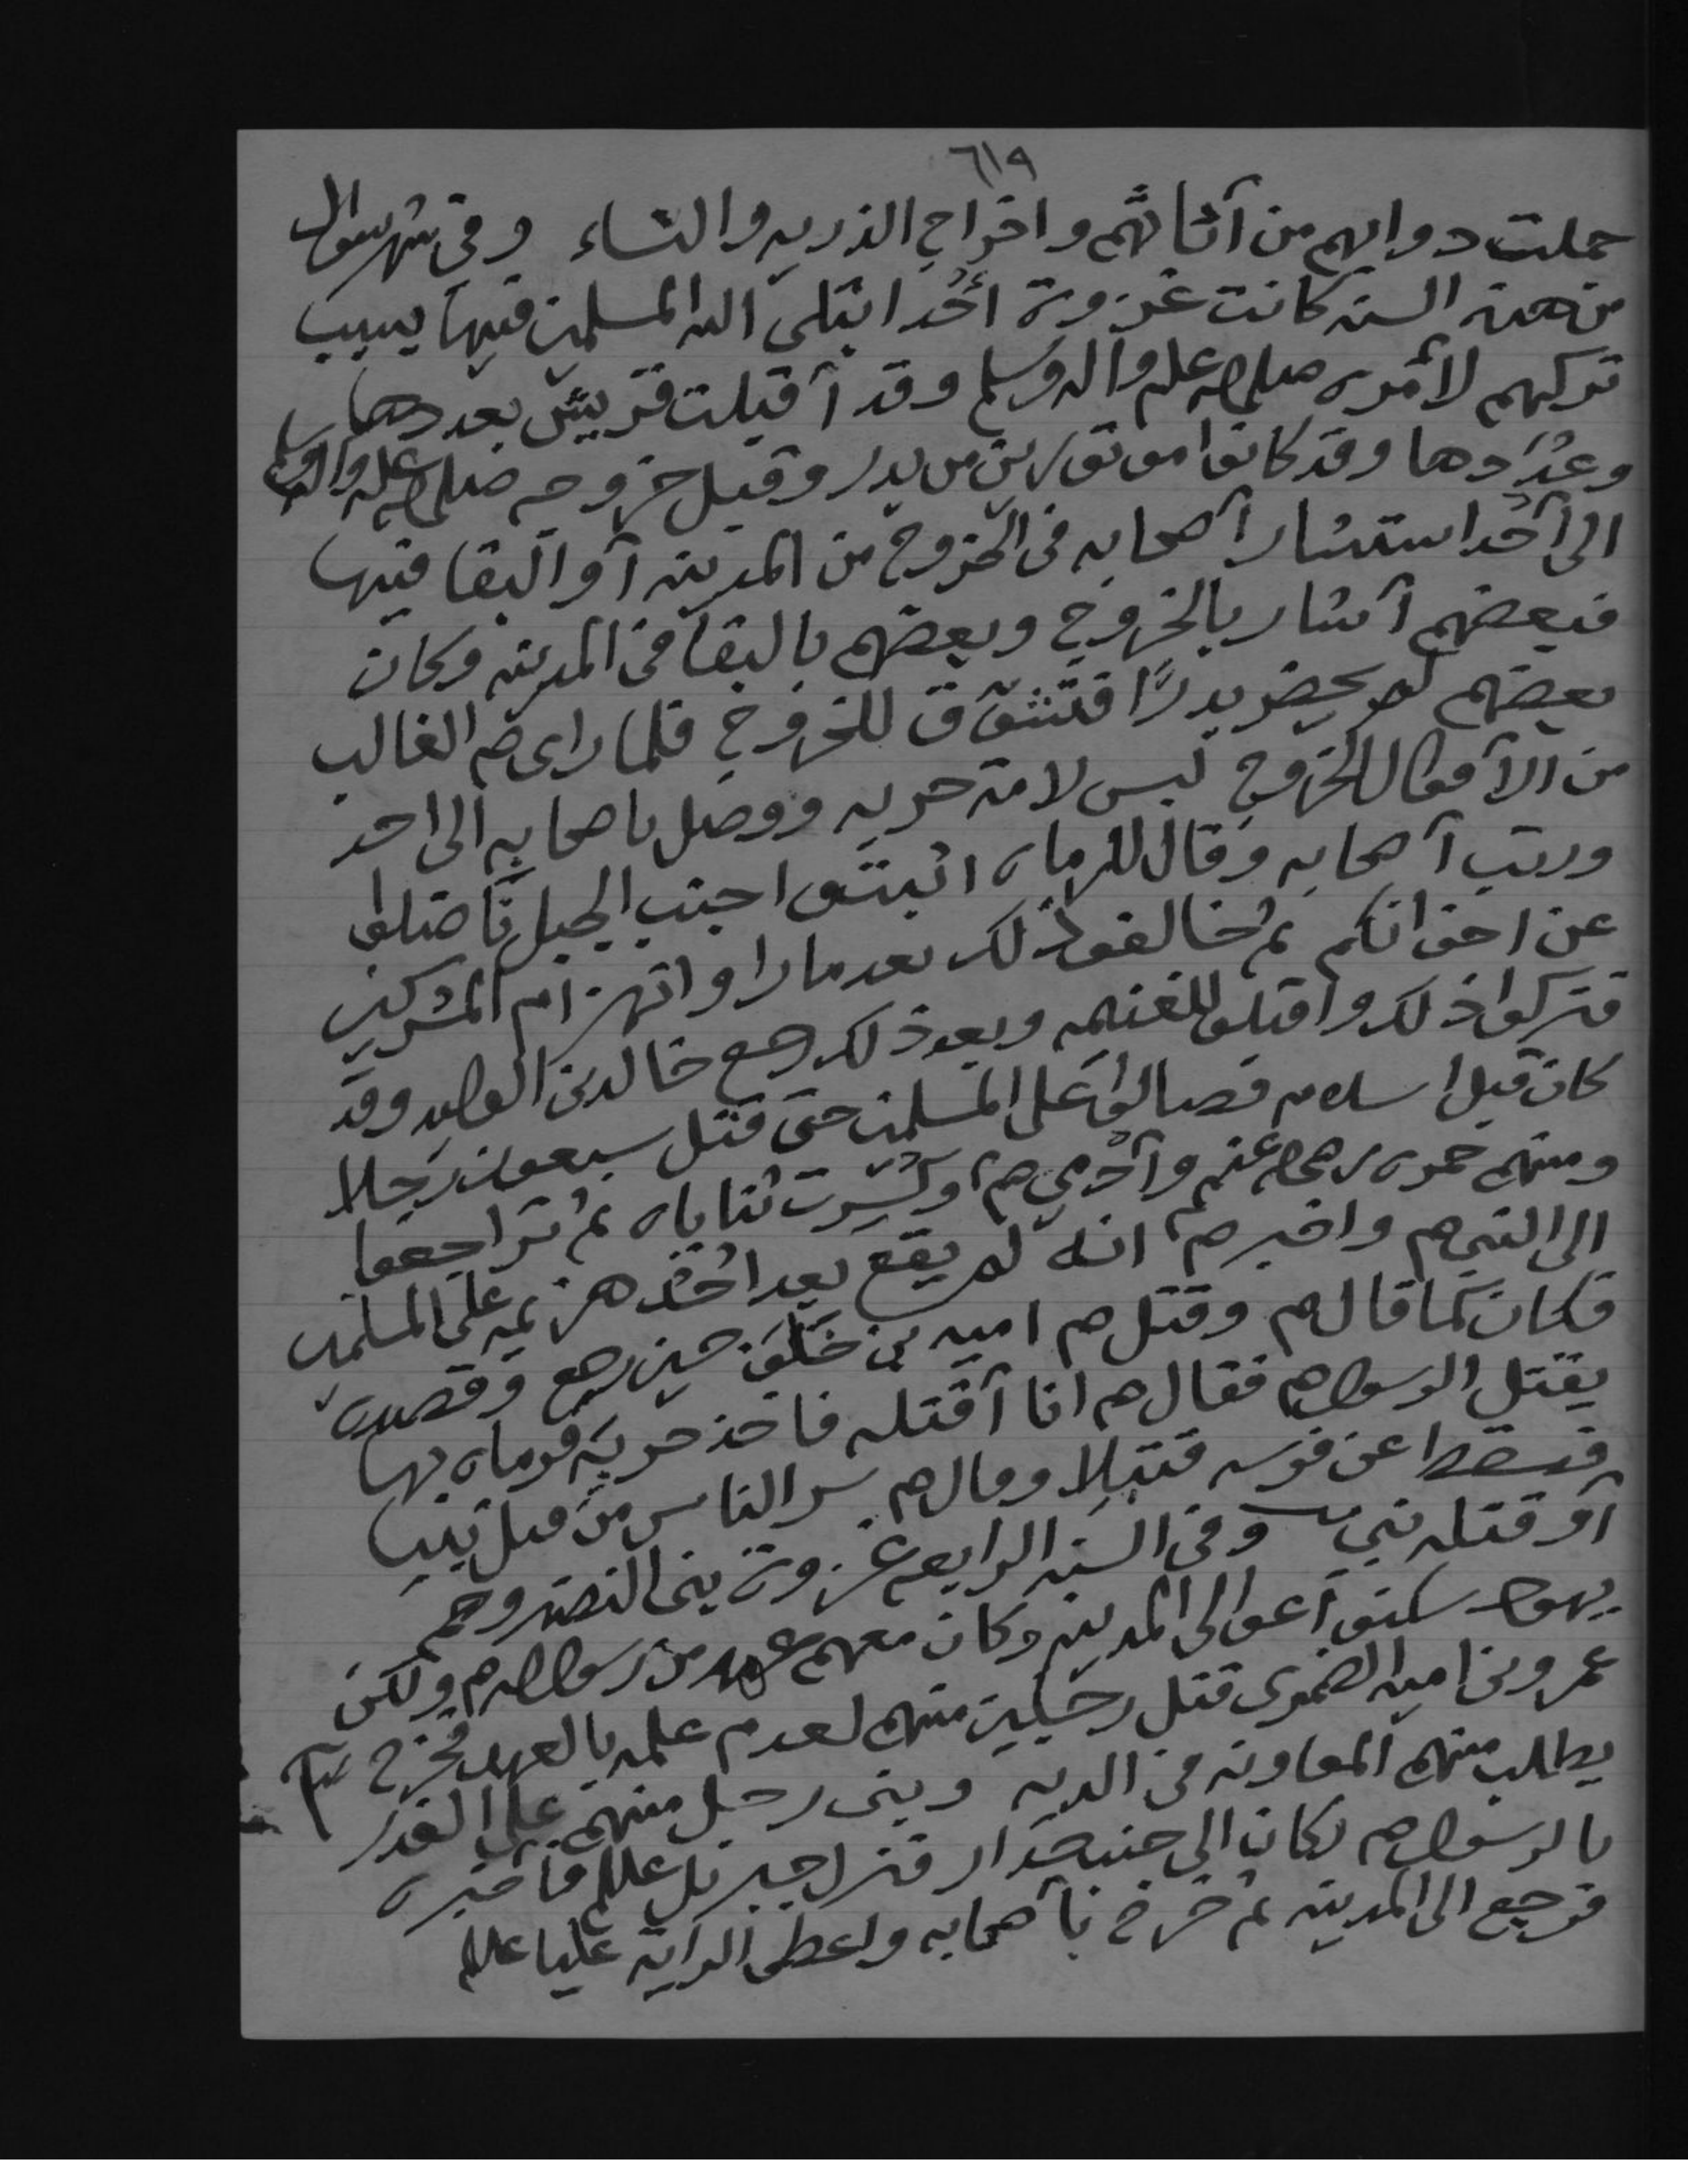 ٦١٩
حملت دوابهم من آثاثهم واخراج الذريه والنساء وفي شهر شوال
من هذه السنه كانت غزوة أُحُد ابتلى الله المسلمين فيها بسبب
تركهم لأمره صلى الله عليه وآله وسلم وقد آقبلت قريش بعددها
وعُدَدها وقد كانوا موتورين من بدر وقبل خروجه صلى الله عليه وآله وسلم
الى أحُد استشار آصحابه في الخروج من المدينه آو البقا فيها
فبعضهم آشار بالخروج وبعضهم بالبقا في المدينه وكان
بعضهم لم يحضر بدرًا فتشوّق للخروج فلما راى صم الغالب
من الآقوال الخروج لبس لامة حربه ووصل باصحابه الى احد
ورتب آصحابه وقال للرماه اثبتوا جنب الجبل ناضلوا
عن اخوانكم ثم خالفوا ذلك بعد ما راو انهزام المشركين
فتركوا ذلك واقبلوا للغنيمه وبعد ذلك رجع خالد بن الوليد وقد
كان قبل اسلامه فصالوا على المسلمين حتى قتل سبعون رجلا
ومنهم حمزه رضي الله عنهم وآُدمي صم وكُسِرت ثناياه ثم تراجعوا
الى النبي صم واخبر صم انه لم يقع بعد احُد هزيمه على المسلمين
فكان كما قال صم وقتل صم اميه بن خَلَف حين رجع وقصده
بقتل الرسول صم فقال صم انا آقتله فاخذ حربة فرماه بها
فسقط عن فرسه قتيلا وقال صم شر الناس من قتل نبيا
آو قتله نبي وفي السنه الرابعه غزوة بني النضير وهم
يهود سكنوآ عوالي المدينه وكان معهم عهد من رسول الله صم ولكن
عمرو بن اميه الضمري قتل رجلين منهم لعدم علمه بالعهد فخرج صم
يطلب منهم المعاونه في الديه وبنى رجل منهم على الغدر
بالرسول صم وكان الى جنب جدار فنزل جبريل علالم فآخبره
فرجع الى المدينه ثم خرج بآصحابه واعطى الرايه عليا علالم